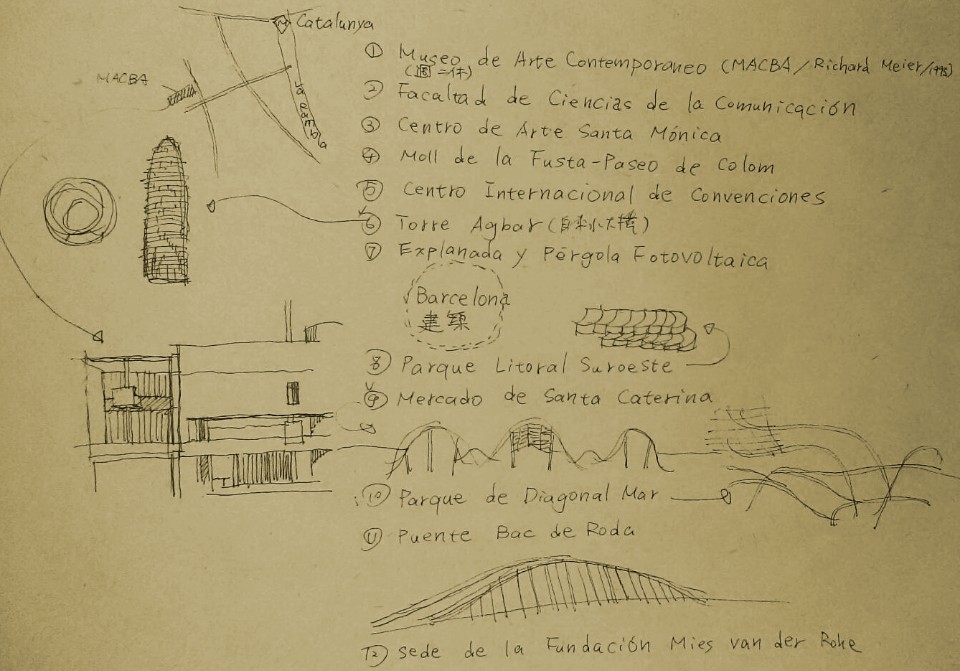 Catalunya
MACBA
① Museo de Arte Contemporaneo (MACBA/Richard Meier/
(週二休)
② Facaltad de Ciencias de la Comunicación
③ Centro de Arte Santa Mónica
④ Moll de la Fusta-Paseo de Colom
⑤ Centro Internacional de Convenciones
⑥ Torre Agbar (自來水大樓)
⑦ Explanada y Pérgola Fotovoltaica
Barcelona
建築
⑧ Parque Litoral Suroeste
⑨ Mercado de Santa Caterina
⑩ Parque de Diagonal Mar
⑪ Puente Bac de Roda
⑫ Sede de la Fundación Mies van der Rohe